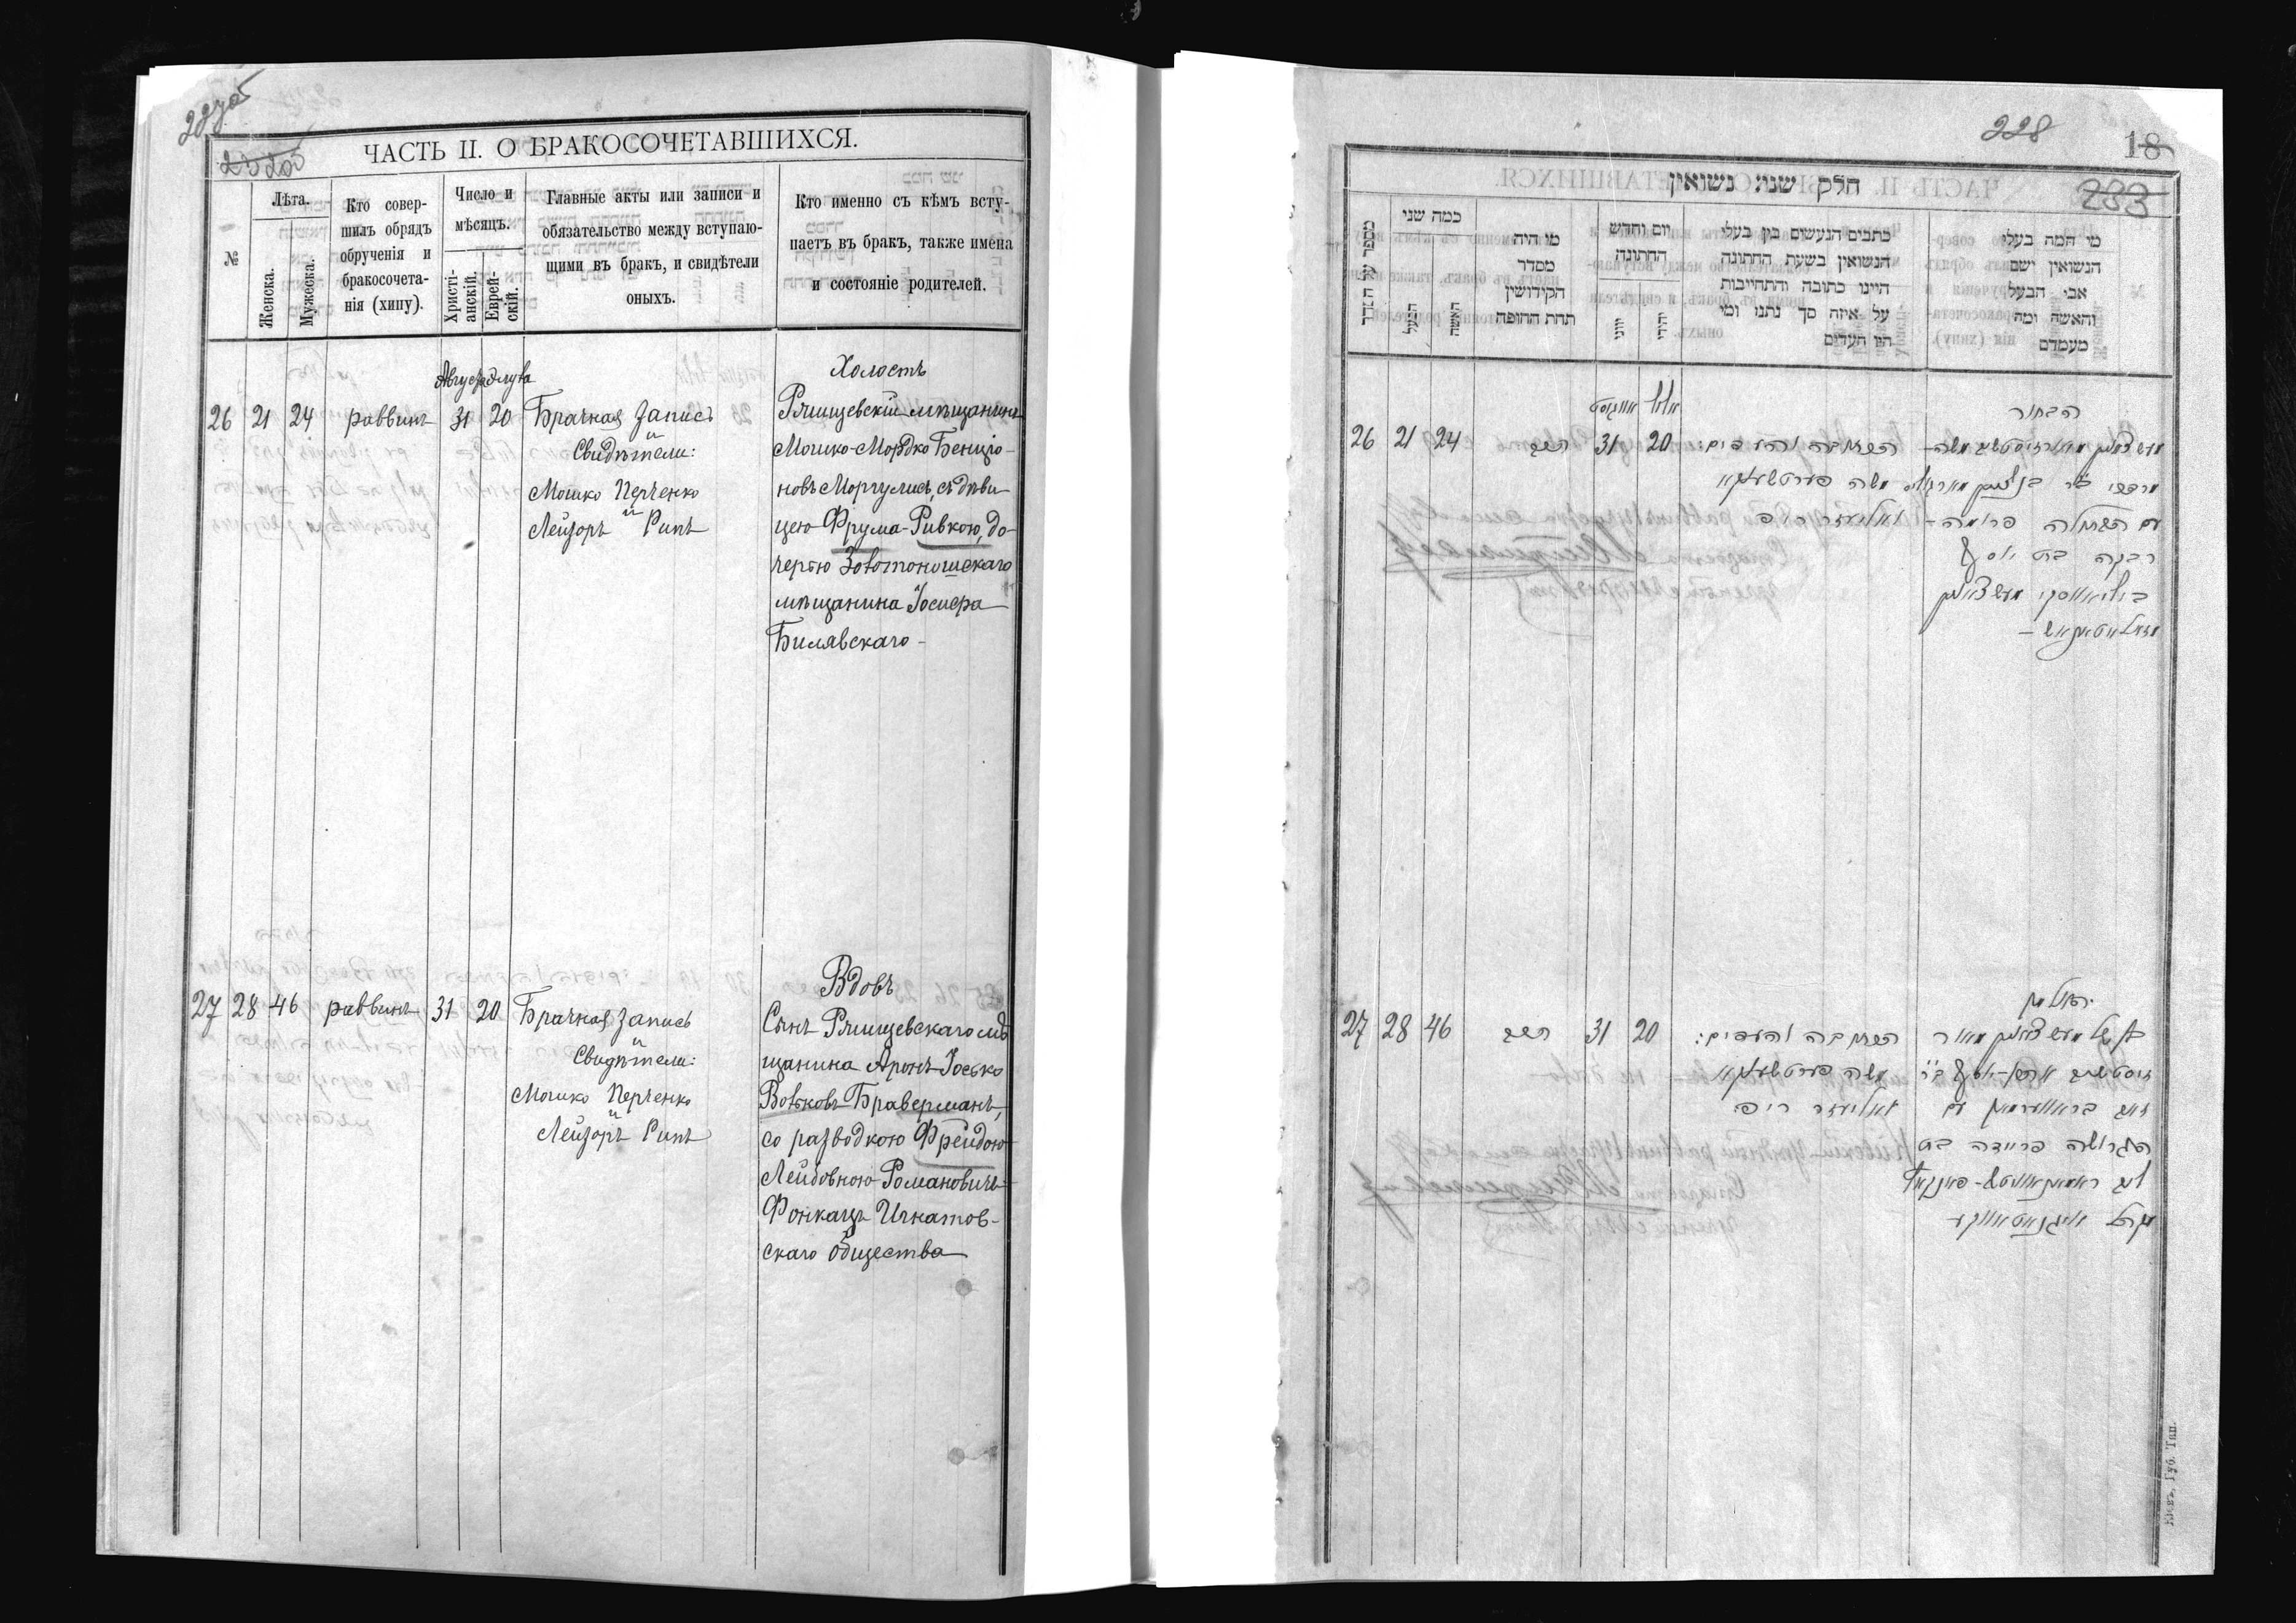 227об
ЧАСТЬ II. О БРАКОСОЧЕТАВШИХСЯ.
№
Лѣта.
Женска.
Мужеска.
Кто совер-
шилъ обрядъ
обрученія и
бракосочета-
нія (хипу).
Число и
мѣсяцъ.
Христі-
анскій.
Еврей-
скій.
Главные акты или записи и
обязательство между вступаю-
щими въ бракъ, и свидѣтели
оныхъ.
Кто именно съ кѣмъ всту-
паетъ въ бракъ, также имена
и состояніе родителей.
26 21 24 раввинъ
Августа Элула
31 20
Брачная запись
и
Свидѣтели:
Мошко Перченко
и
Лейзоръ Рипъ
Холостъ
Ржищевскій мѣщанинъ
Мошко-Мордко Бенціо-
новъ Моргулисъ, съ дѣви
цею Фрума-Ривкою, до-
черью Золотоношскаго
мѣщанина Іосифа
Билявскаго-
27 28 46 раввинъ 31 20
Брачная запись
и
Свидѣтели:
Мошко Перченко
и
Лейзоръ Рипъ
Вдовъ
Сынъ Ржищевскаго мѣ
щанина Аронъ-Іосько
Вольковъ Браверманъ,
со разводкою Фрейдою
Лейбовною Романовичъ-
Фонкацъ Игнатов-
скаго общества
228
18
233
חלק שני נשואין
מספר על הסדר
כמה שני
הבעל
האשה
מי היה
מסדר
הקידושין
תחת החופה
יום וחדש
החתונה
יווני
יהודי
כתבים הנעשים בין בעלי
הנשואין בשעת החתונה
היינו כתובה והתחייבות
על איזה סך נתנו ומי
היו העדים
מי המה בעלי
הנשואין ושם
אבי הבעל
והאשה ומה
מעמדם
26 21 24 הרב
אווגוסט אלול
31 20
משה פערטשענקא
ואליעזר ריפ
הבחור
עם הבתולה פרומה-
רבקה בת יוסף
27 28 46 הרב 31 20
משה פערטשענקא
ואליעזר ריפ
האלמן
זאב בראווערמאן עם
הגרושה פריידה בת
Кіевъ, Губ. Тип.